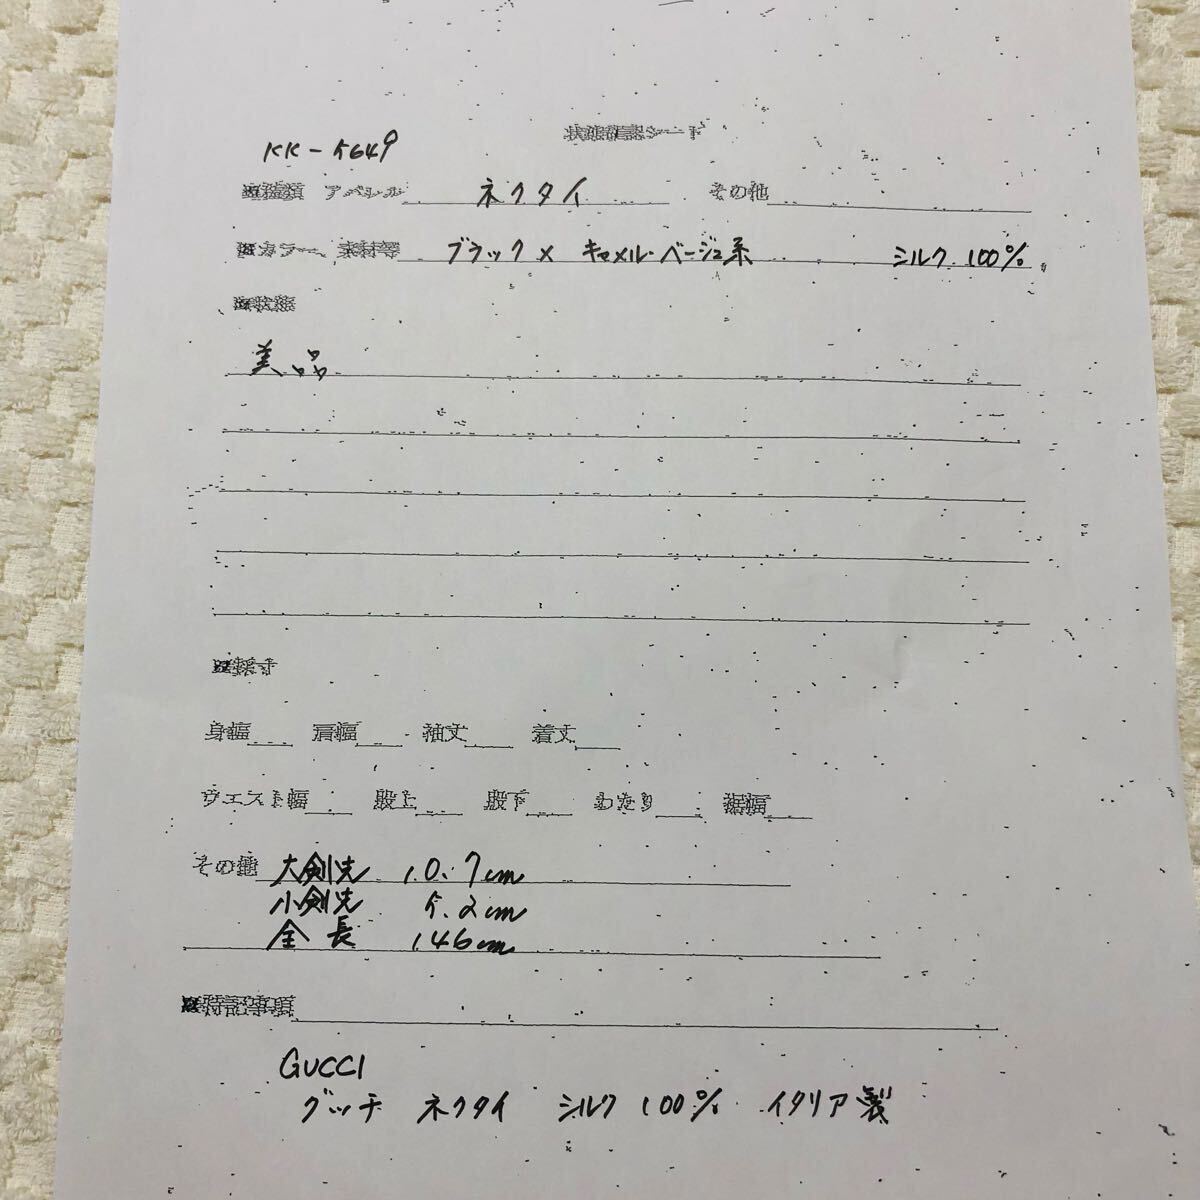 状態確認シート
KK-5649
■種類 アパレル ネクタイ その他
■カラー、素材等 ブラック× キャメル・ベージュ系 シルク 100%
■状態
美品
■採寸
身幅 肩幅 袖丈 着丈
ウエスト幅 股上 股下 わたり 裾幅
その他 大剣先 10.7cm
小剣先 5.2cm
全長 146cm
■特記事項
GUCCI
グッチ ネクタイ シルク 100% イタリア製